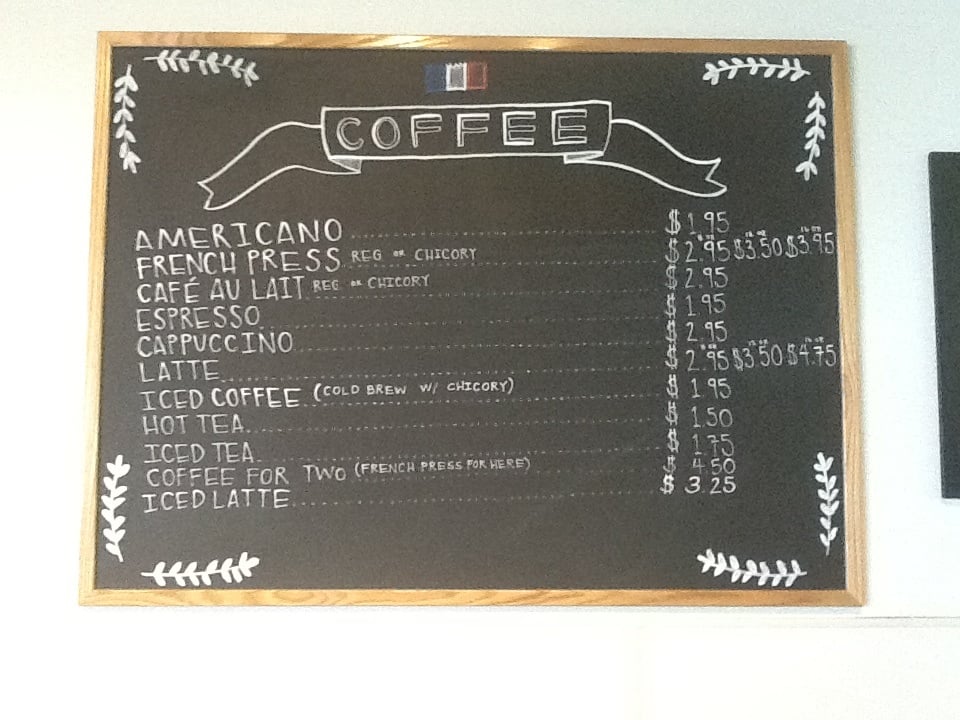 COFFEE
AMERICANO $1.95
FRENCH PRESS REG OR CHICORY $2.95 $3.50 $3.95
CAFÉ AU LAIT REG OR CHICORY $2.95
ESPRESSO $1.95
CAPPUCCINO $2.95
LATTE $2.95 $3.50 $4.75
ICED COFFEE (COLD BREW W/ CHICORY) $1.95
HOT TEA $1.50
ICED TEA $1.75
COFFEE FOR TWO (FRENCH PRESS FOR HERE) $4.50
ICED LATTE $3.25